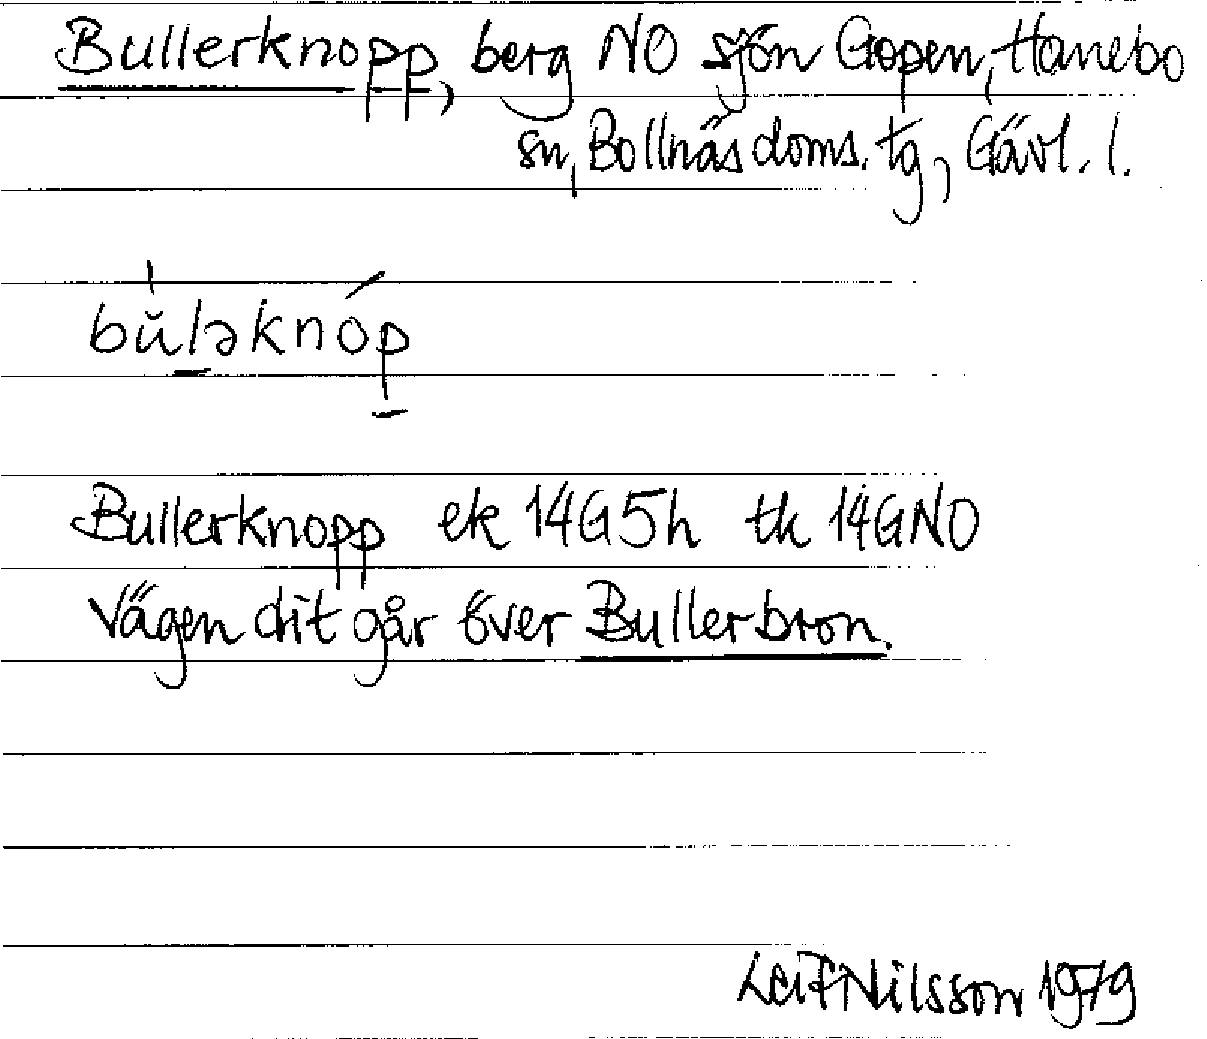 Bullerknopp, berg NO sjön Gopen, Hanebo
sn, Bollnäs doms. tg, Gävl. l.
bŭləknóp
Bullerknopp ek 14G5h tk 14GNO
Vägen dit går över Bullerbron.
Leif Nilsson 1979